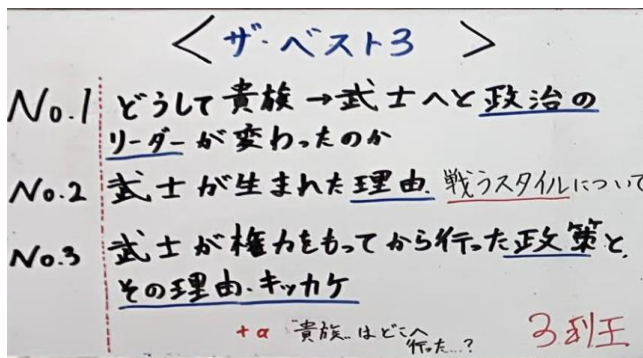 ＜ザ・ベスト3＞
No.1 どうして貴族→武士へと政治の
リーダーが変わったのか
No.2 武士が生まれた理由.戦うスタイルについて
No.3 武士が権力をもってから行った政策と、
その理由.キッカケ
+α "貴族"はどこへ
行った…?